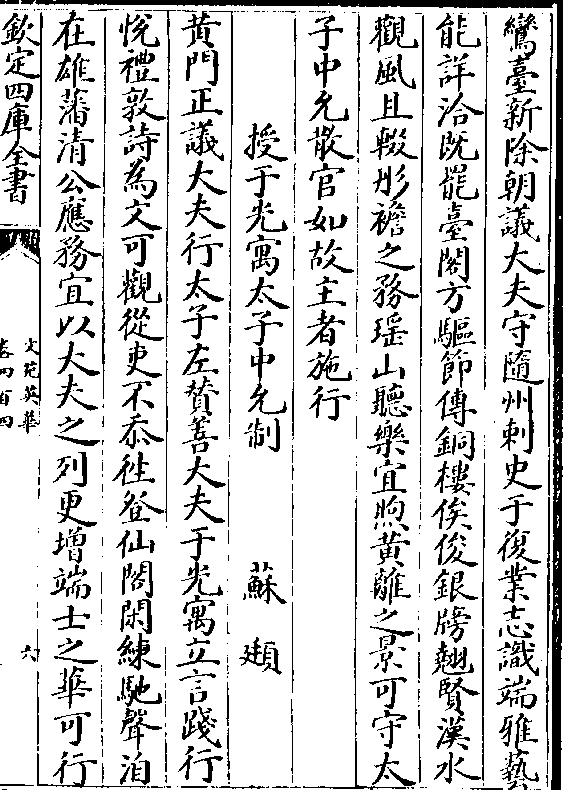 鸞臺新除朝議大夫守隨州刺史于復業志識端雅藝
能詳洽既罷臺閣方驅節傳銅樓俟俊銀牓翹賢漢水
觀風且輟彤襜之務瑶山聽樂宜煦黄離之景可守太
子中允散官如故主者施行
授于光寓太子中允制 蘇頲
黄門正議大夫行太子左賛善大夫于光寓立言踐行
悅禮敦詩為文可觀從吏不忝徃登仙閣閑練馳聲洎
在雄藩清公應務宜以大夫之列更增端士之華可行
欽定四庫全書
文苑英華
卷四百四
六